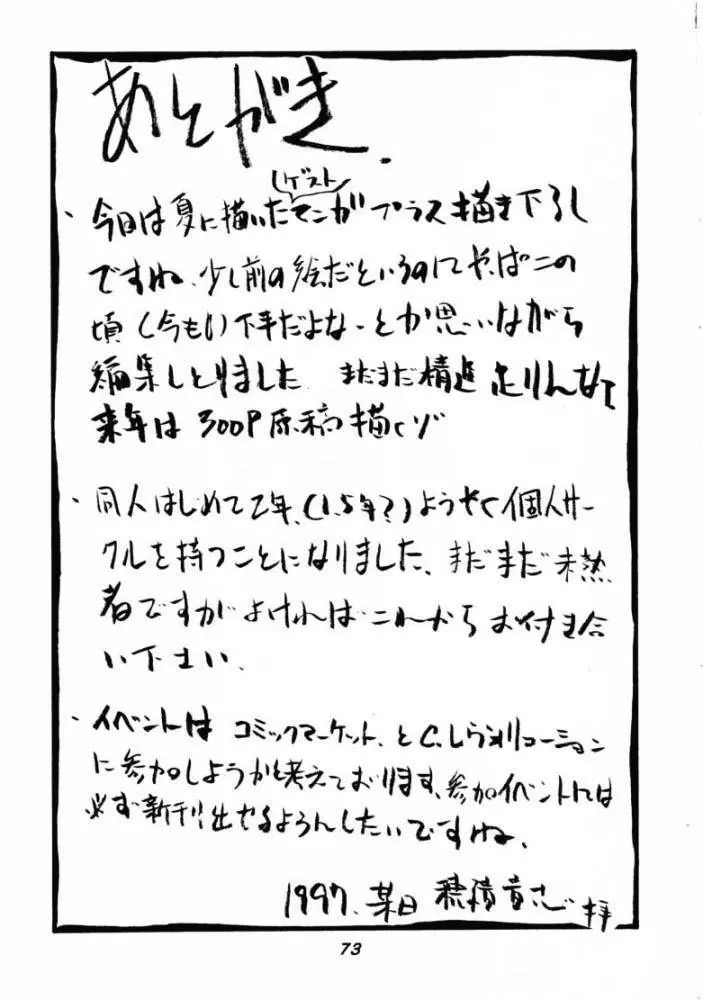 あとがき.
ゲスト
・今日は夏に描いたマンガプラス描き下ろし
ですね、少し前の絵だというのにやっぱこの
頃(今も!)下手だよなーとか思いながら
編集しとりました まだまだ精進足りんなて
来年は300P原稿描くゾ
・同人はじめて2年、(1.5年?)ようやく個人サー
クルを持つことになりました、まだまだ未熟
者ですがよければこれからお付き合
い下さい、
・イベントは コミックマーケット、とC.レヴォリューション
に参加しようかと考えております、参加イベントには
必ず新刊出せるようんしたいですね、
1997、某日 穂積貴志 拝
73